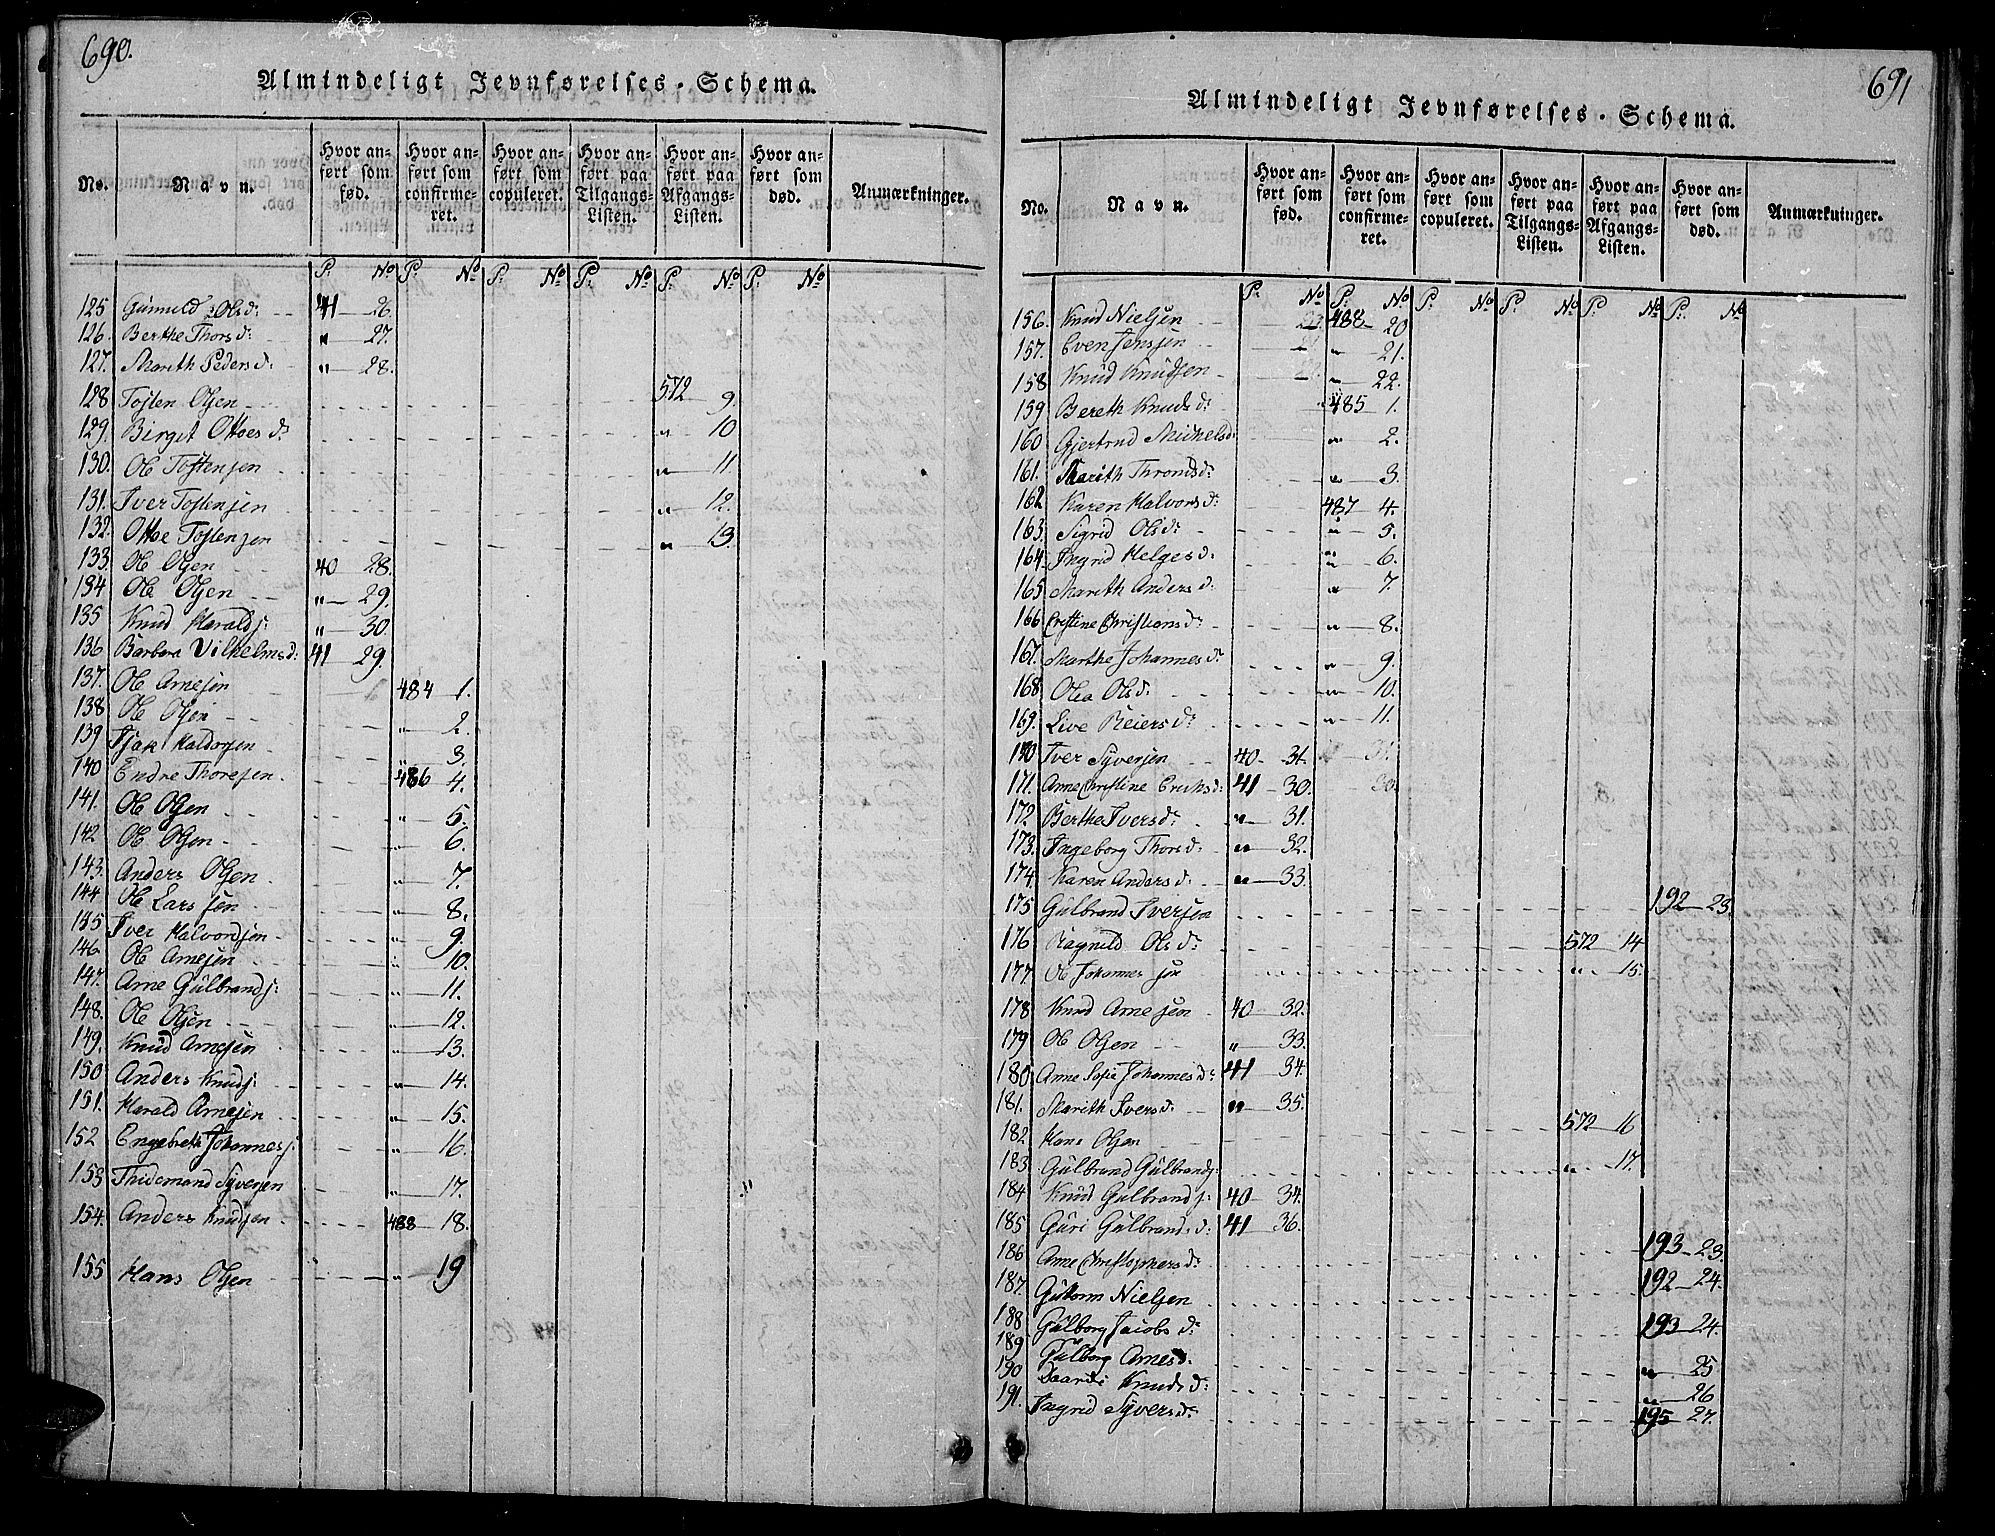 690.
Almindeligt Jevnførelses-Schema.
No. Navn. Hvor anført som fød. Hvor anført som confirmeret. Hvor anført som copuleret. Hvor anført paa Tilgangs-Listen. Hvor anført paa Afgangs-Listen. Hvor anført som død. Anmærkninger.
P. No P. No P. No P. No P. No P. No
125 Gunnild Olsd: 41 26.
126. Berthe Thorsd: " 27.
127. Marith Pedersd. " 28.
128 Tosten Olsen 572 9.
129. Birgit Ottoesd: " 10
130. Ole Tostensen " 11.
131. Iver Tostensen " 12.
132. Ottoe Tostensen " 13.
133. Ole Olsen 40 28.
134 Ole Olsen " 29.
135 Knud Haralds: " 30
136 Barbara Vilhelmsd: 41 29.
137. Ole Arnesen 484 1.
138 Ole Olsen " 2.
139 Haldorsen " 3.
140 Endre Thoresen 486 4.
141. Ole Olsen " 5.
142 Ole Olsen " 6.
143. Anders Olsen " 7.
144 Ole Larssen " 8.
145 Iver Halvordsen " 9.
146. Ole Arnesen " 10.
147. Arne Gulbrands: " 11.
148. Ole Olsen " 12.
149. Knud Arnesen " 13.
150 Anders Knuds: " 14.
151. Harald Arnesen " 15.
152 Engebreth Johanness: " 16.
153 Thidemand Syversen " 17.
154. Anders Knudsen 488 18.
155 Hans Olsen " 19
691
Almindeligt Jevnførelses-Schema.
No. Navn. Hvor anført som fød. Hvor anført som confirmeret. Hvor anført som copuleret. Hvor anført paa Tilgangs-Listen. Hvor anført paa Afgangs-Listen. Hvor anført som død. Anmærkninger.
P. No P. No P. No P. No P. No P. No
156. Knud Nielsen 488 20
157. Even Jensen " 21.
158 Knud Knudsen " 22.
159 Bereth Knudsd: 485 1.
160 Gjertrud Michelsd: " 2.
161. Marith Throndsd: " 3.
162 Karen Halvorsd: 487 4.
163. Sigrid Olsd: " 5.
164. Ingrid Helgesd: " 6.
165 Marith Andersd: " 7.
166 Cristine Christiansd: " 8.
167. Marthe Johannesd: " 9.
168 Olea Olsd: " 10.
169. Live Reiersd: " 11.
170 Iver Syversen 40 31.
171. Anne Christine Eriksd: 41 30.
172 Berthe Iversd: " 31.
173. Ingeborg Thorsd: " 32.
174. Karen Andersd: " 33.
175 Gulbrand Iversen 192 23.
176 Ragnild Olsd: 572 14
177. Ole Johannessøn " 15.
178 Knud Arnesen 40 32.
179 Ole Olsen " 33.
180 Anne Sofie Johannesd: 41 34.
181. Marith Iversd. " 35.
182 Hans Olsen 572 16
183. Gulbrand Gulbrands: " 17.
184 Knud Gulbrands: 40 34.
185 Guri Gulbrandsd: 41 36.
186 Anne Christophersd: 193 23.
187. Guttorm Nielsen 192 24.
188 Gulborg Jacobsd: 193 24.
189 Gulborg Arnesd: " 25
190 Knudsd: " 26
191. Ingrid Syversd: 195 27.